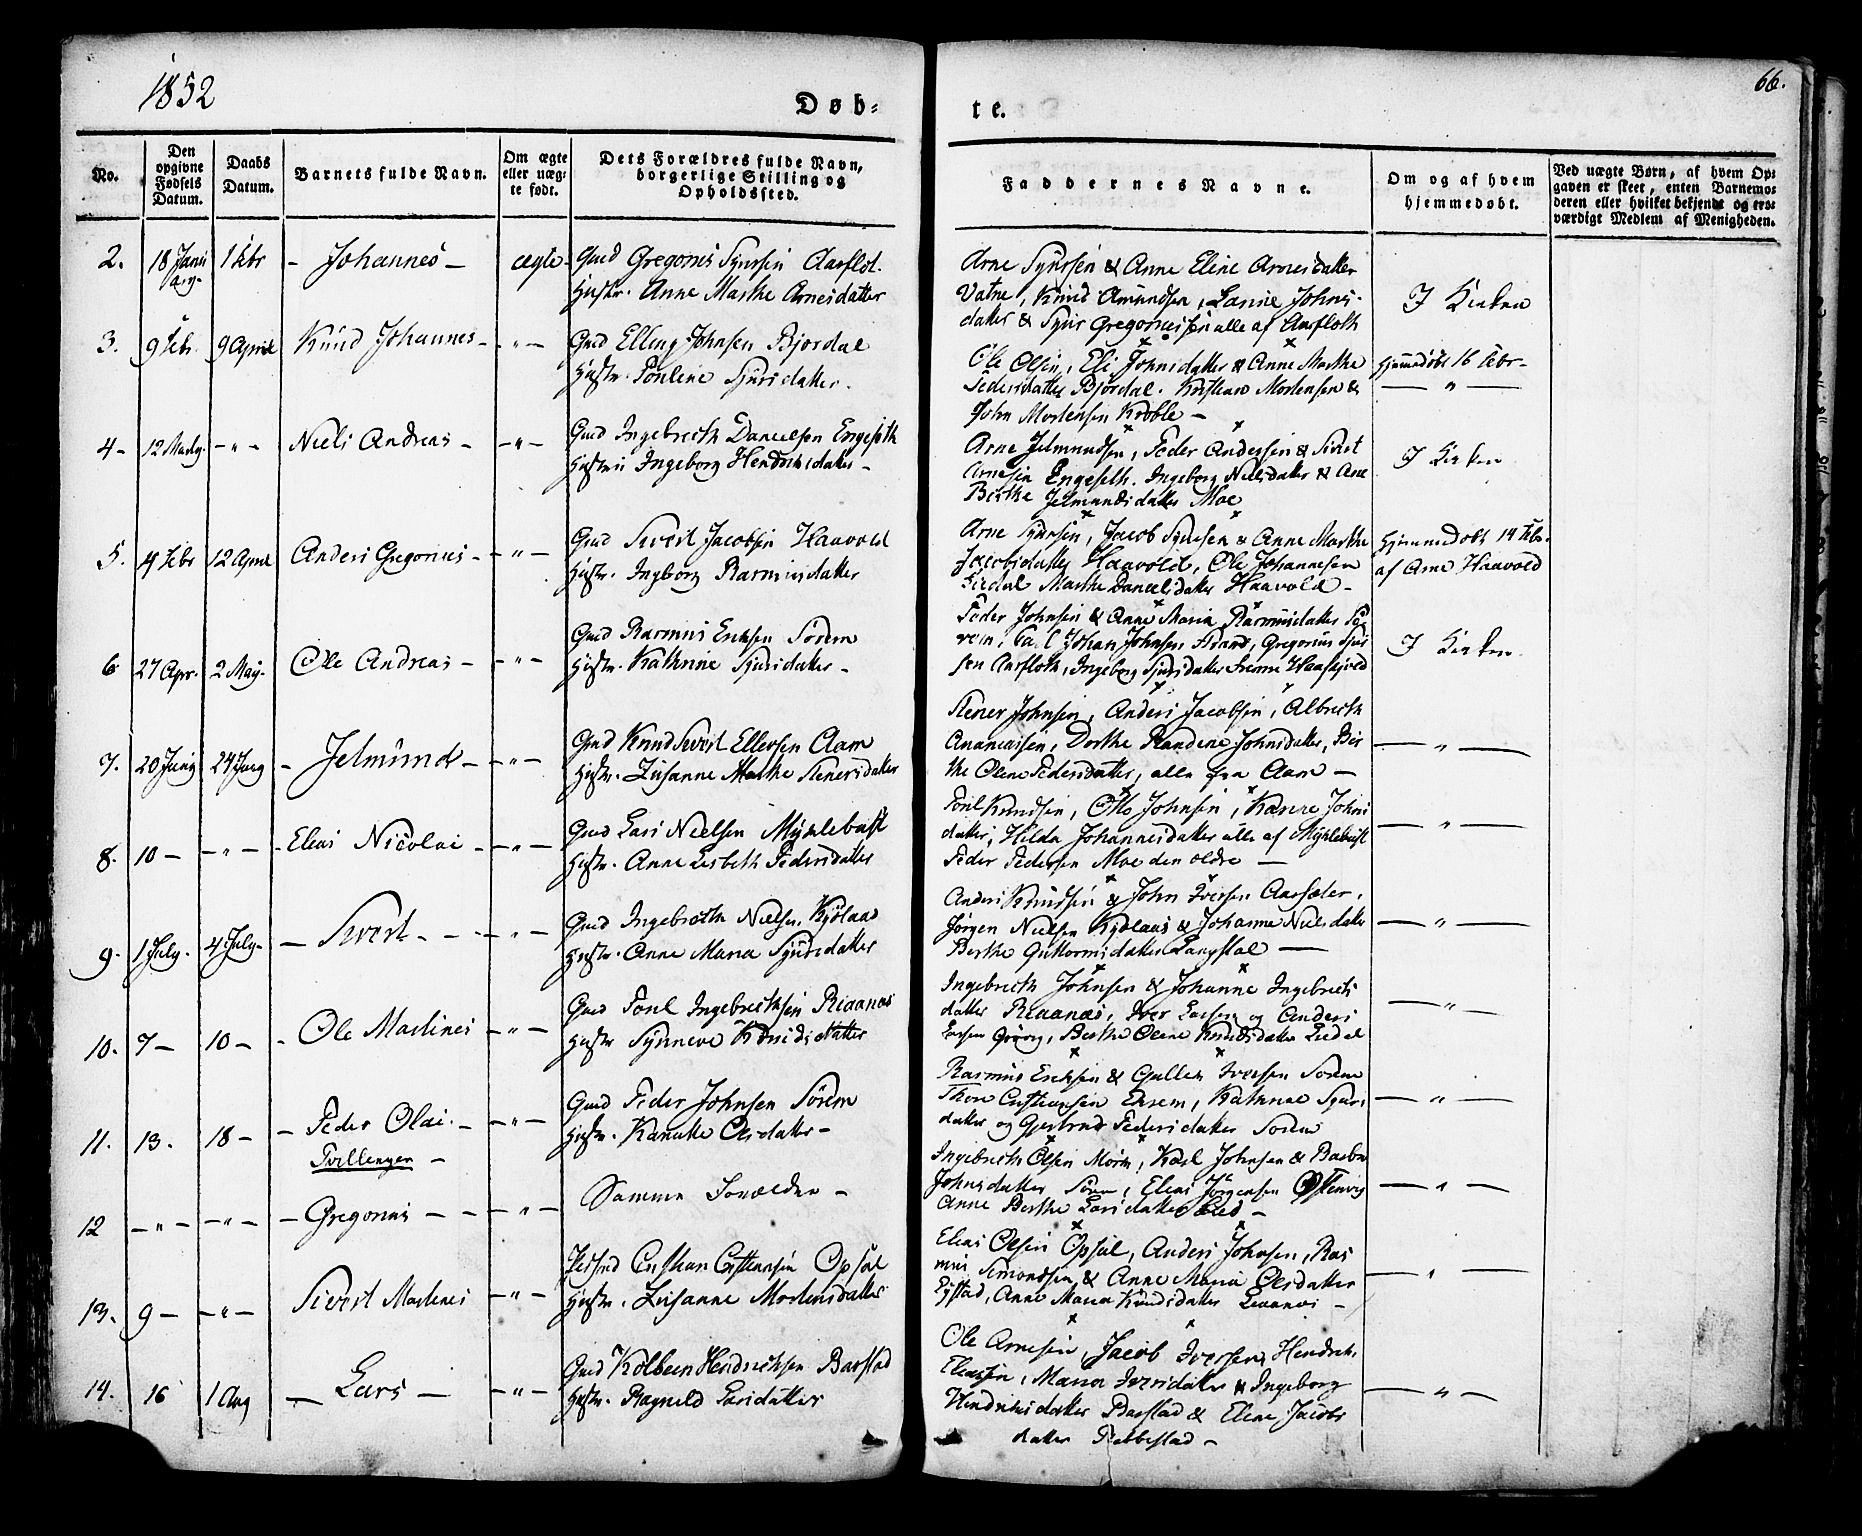 1852
66.
Døb-
te.
No.
Den opgivne Fødsels Datum.
Daabs Datum.
Barnets fulde Navn.
Om ægte eller uægte født.
Dets Forældres fulde Navn, borgerlige Stilling og Opholdssted.
Faddernes Navne.
Om og af hvem hjemmedøbt.
Ved uægte Børn, af hvem Opgaven er skeet, enten Barnemoderen eller hvilket bekjendt og troværdigt Medlem af Menigheden.
2. 18 Januarij 1 Febr - Johannes - ægte -
Gmd Gregorius Syvrsen Aarflot.
Hustr. Anne Marthe Arnesdatter
Arne Syvrsen & Anne Eline Arnesdatter
Vatne, Knud Amundsen, Lavine Johns-
datter & Syvr Gregoriussen alle af Aarfloth
I Kirken
3. 9 Febr. 9 April Knud Johannes - " -
Gmd Elling Johnsen Bjordal
Hustr. Pouline Sjursdatter.
Ole Olsen, Eli Johnsdatter & Anne Marthe
Pedersdatter Bjordal. Kristian Mortensen &
John Mortensen Krøble -
Hjemmedøbt 16 Febr -
— " —
4 - 12 Martz. - " - Niels Andreas - - " -
Gmd Ingebreth Danielsen Engeseth
Hustru Ingeborg Hendriksdatter -
Arne Jelmundsen, Peder Andersen & Sivert
Arnesen Engeseth. Ingeborg Nielsdatter & Ane
Birthe Jelmundsdatter Moe
I Kirken
5. 14 Febr 12 April Anders Gregorius - - " -
Gmd Sivert Jacobsen Haavold
Hustr. Ingborg Rasmusdatter
Arne Syvrsen, Jacob Syvrsen & Anne Marthe
Jacobsdatter Haavold, Ole Johannesen
Liedal Marthe Danielsdatter Haavold -
Hjemmedøbt 14 Febr.
af Arne Haavold
6 27 Apr. 2 May - Ole Andreas - - " -
Gmd Rasmus Eriksen Sørem
Hustr. Kathrine Sjursdatter -
Peder Johnsen & Anne Maria Rasmusdatter Sø-
rem, Johan Johnsen Strand, Gregorius Sjur-
sen Aarfloth, Ingeborg Sjursdatter
I Kirken
7. 20 Juny 24 Juny - Jelmund - - " -
Gmd Knud Sivert Ellevsen Aam
Hustr. Zusanne Marthe Stenersdatter
Stener Johnsen, Anders Jacobsen, Albreth
Ananiassen, Dorthe Randine Johnsdatter, Bir-
the Oline Pedersdatter, alle fra Aam -
— " —
8. 10 - - " - Elias Nicolai - - " -
Gmd Lars Nielsen Myklebust
Hustr. Anne Lisbeth Pedersdatter
Poul Knudsen, Otto Johnsen, Karen Johns-
datter, Hilda Johannesdatter alle af Myklebust
Peder Pedersen Moe den ældre —
— " —
9. 1 July. 4 July - - Sivert - - " -
Gmd Ingebreth Nielsen Kjølaas
Hustr. Anne Maria Syvrsdatter
Anders Knudsen & John Iversen Aarsæter,
Jørgen Nielsen Kjølaas & Johanne Nielsdatter
Berthe Guttormsdatter Langstøl —
— " —
10. 7 - 10 - - Ole Martinus - " -
Gmd Poul Ingebrethsen Riaanæs
Hustr Synneve Knudsdatter
Ingebreth Johnsen & Johanne Ingebrets-
datter Riaanæs, Iver Larsen og Anders
Larsen Grøvig, Berthe Oline Knudsdatter Liedal
— " —
11. 13. 18 - - Peder Olai. - - " -
Tvillinger -
Gmd Peder Johnsen Sørem
Hustr. Kanutte Olsdatter -
Rasmus Eriksen & Gullek Iversen Sørem
Thore Cristiansen Ekrem, Kathrine Sjurs-
datter og Gjertrud Pedersdatter Sørem
— " —
12 - " - - " - - Gregorius - - " -
Samme Forældre -
Ingebreth Olsen Mørk, Karl Johnsen & Barbra
Johnsdatter Sørem, Elias Jørgensen Østenvig
Anne Berthe Larsdatter -
— " —
13. 9 - - " - Sivert Martinus - " -
Cristian Cristiansen Opsal
Hustr. Zusanne Mortensdatter
Elias Olsen Opsal, Anders Johnsen, Ras-
mus Simondsen & Anne Maria Olsdatter
Egstad, Anne Maria Knudsdatter -
— " —
14. 16 1 Aug - Lars - - " -
Gmd Kolbeen Hendriksen Barstad
Hustr. Ragnild Larsdatter
Ole Arnesen, Jacob Iversen, Hendrik
Eliassen, Maria Iversdatter & Ingeborg
Hendriksdatter Barstad & Eline Jacobs-
datter Rebbestad -
— " —